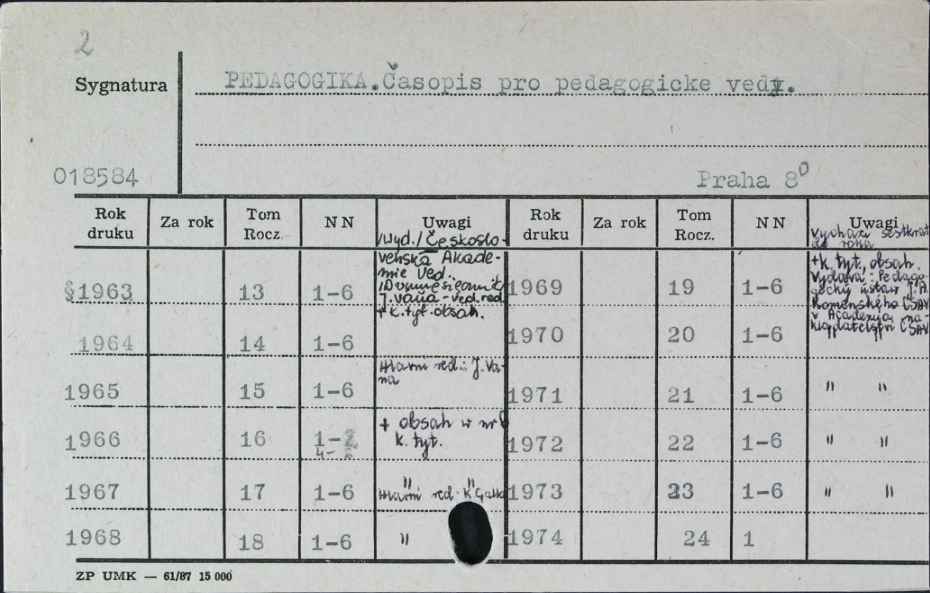 2
Sygnatura PEDAGOGIKA.Časopis pro pedagogicke vedy.
018584 Praha 8⁰
Rok druku Za rok Tom Rocz. N N Uwagi Rok druku Za rok Tom Rocz. N N Uwagi
/Wyd./ Českoslo-
venská Akade-
mie Věd.
/Dwumiesięcznik/
J. Váňa - ved. red.
+ k. tyt. obsah.
§1963 13 1-6
1964 14 1-6
1965 15 1-6 Hlavní red.: J. Vá-
ňa
1966 16 1-2 + obsah w nr 6
4- k. tyt.
1967 17 1-6 " "
Hlavní red. K. Galla
1968 18 1-6 "
Vychází šestkrát
do roka
+ k. tyt., obsah.
Vydává: Pedago-
gický ústav J. A.
Komenského ČSAV
v Academia, na-
kladatelství ČSAV
1969 19 1-6
1970 20 1-6
1971 21 1-6 " "
1972 22 1-6 " "
1973 23 1-6 " "
1974 24 1
ZP UMK — 61/87 15 000